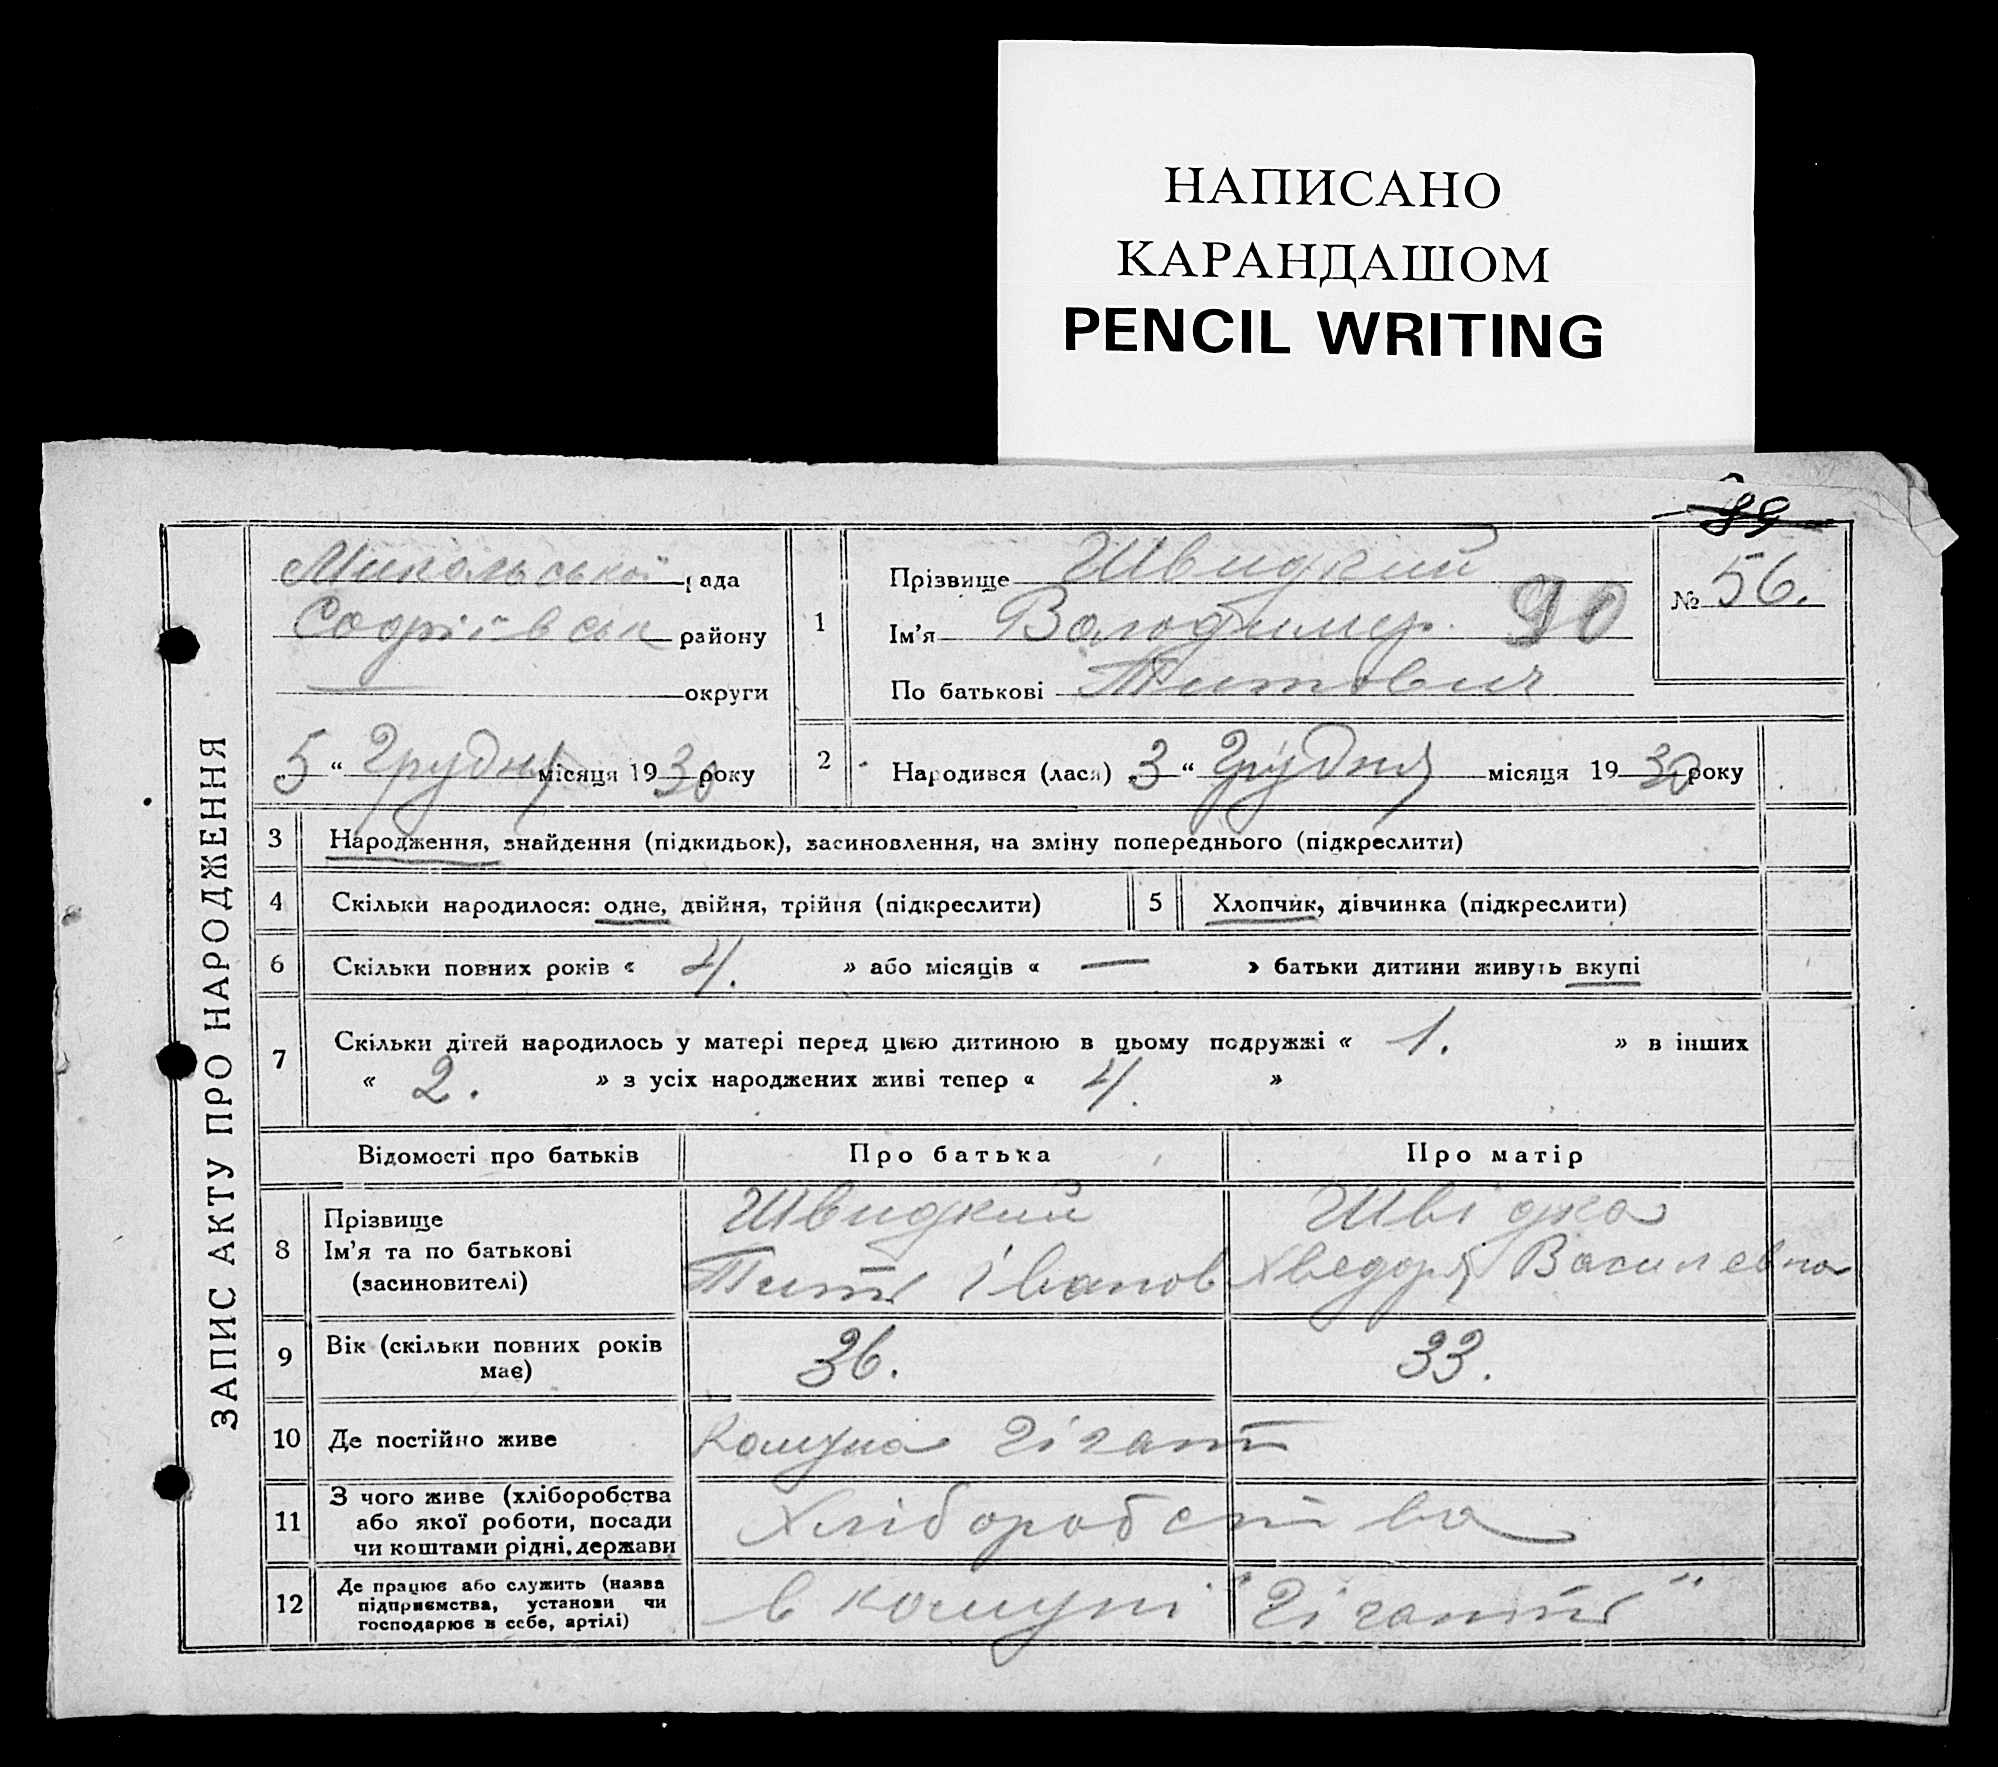 НАПИСАНО
КАРАНДАШОМ
PENCIL WRITING
89
ЗАПИС АКТУ ПРО НАРОДЖЕННЯ
Микольської рада
Софіївськ району
— округи
5 “ Грудня місяця 1930 року
1
Прізвище Швидкий
Ім’я Володимер. 90
По батькові Титович
№ 56.
2
Народився (лася) „3 “ Грудня місяця 1930 року
3 Народження, знайдення (підкидьок), засиновлення, на зміну попереднього (підкреслити)
4 Скільки народилося: одне, двійня, трійня (підкреслити) 5 Хлопчик, дівчинка (підкреслити)
6 Скільки повних років « 4. » або місяців « — » батьки дитини живуть вкупі
7 Скільки дітей народилось у матері перед цією дитиною в цьому подружжі « 1. » в інших
« 2. » з усіх народжених живі тепер « 4. »
Відомості про батьків Про батька Про матір
8 Прізвище Швидкий Швідка
Ім’я та по батькові Титъ Іванов Хведоря Василевна
(засиновителі)
9 Вік (скільки повних років має) 36. 33.
10 Де постійно живе Комуна Гігант
11 З чого живе (хліборобства
або якої роботи, посади
чи коштами рідні, держави Хліборобства
12 Де працює або служить (назва
підприємства, установи чи
господарює в себе, артілі) в комуні "Гігантъ"